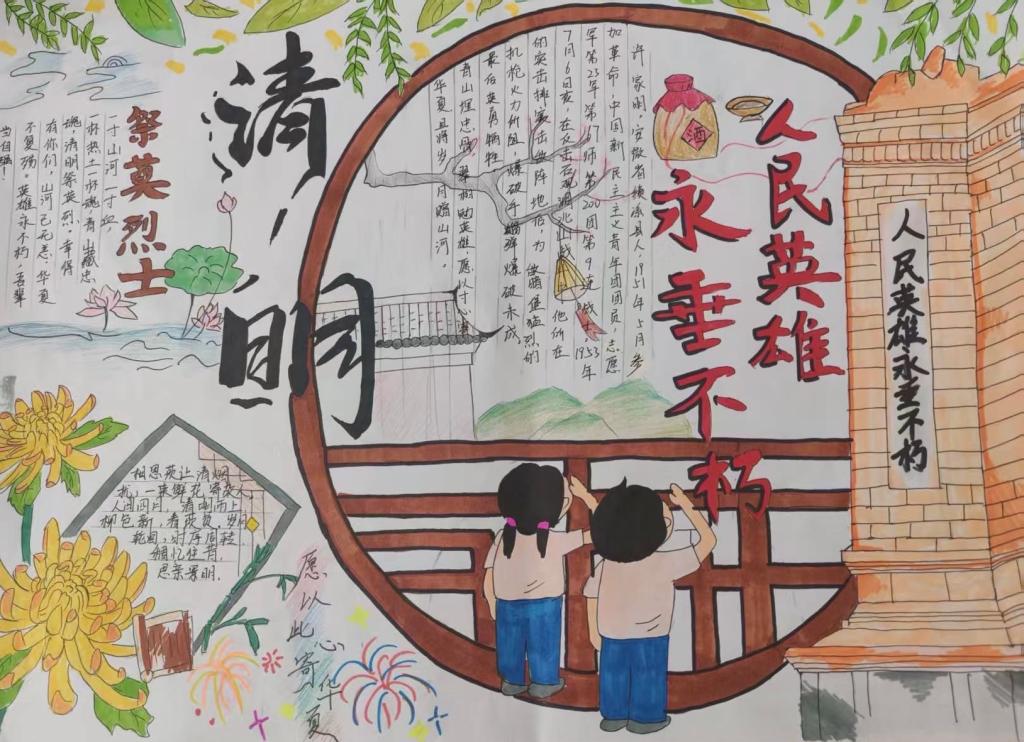 清明
人民英雄
永垂不朽
人民英雄永垂不朽
许家朋，安徽省绩溪县人，1951年5月参
加革命，中国新民主主义青年团团员，志愿
军第23军，第67师，第200团第9连战，1953年
7月6日夜，在反击石砚洞北山战，他所在
的突击排实击敌阵地后，为敌暗堡猛烈的
机枪火力所阻，爆破手爆破未成，
最后英勇牺牲
青山埋忠国，翠柏勉英雄，愿以寸心寄
华夏且将岁月赠山河。
酒
祭英烈士
一寸山河一寸血，
一抔热土一抔魂，青山藏忠
魂，清明祭英烈，幸得
有你们，山河已无恙，华夏
不复殇。英雄永不朽，吾辈
当自强！
相思莫让清烟
扰，一束鲜花寄故人
人间四月，清明雨上
柳色新，春校复，岁月
轮回，时序周转
细忆往昔
思亲景明.
愿以此寄心华夏